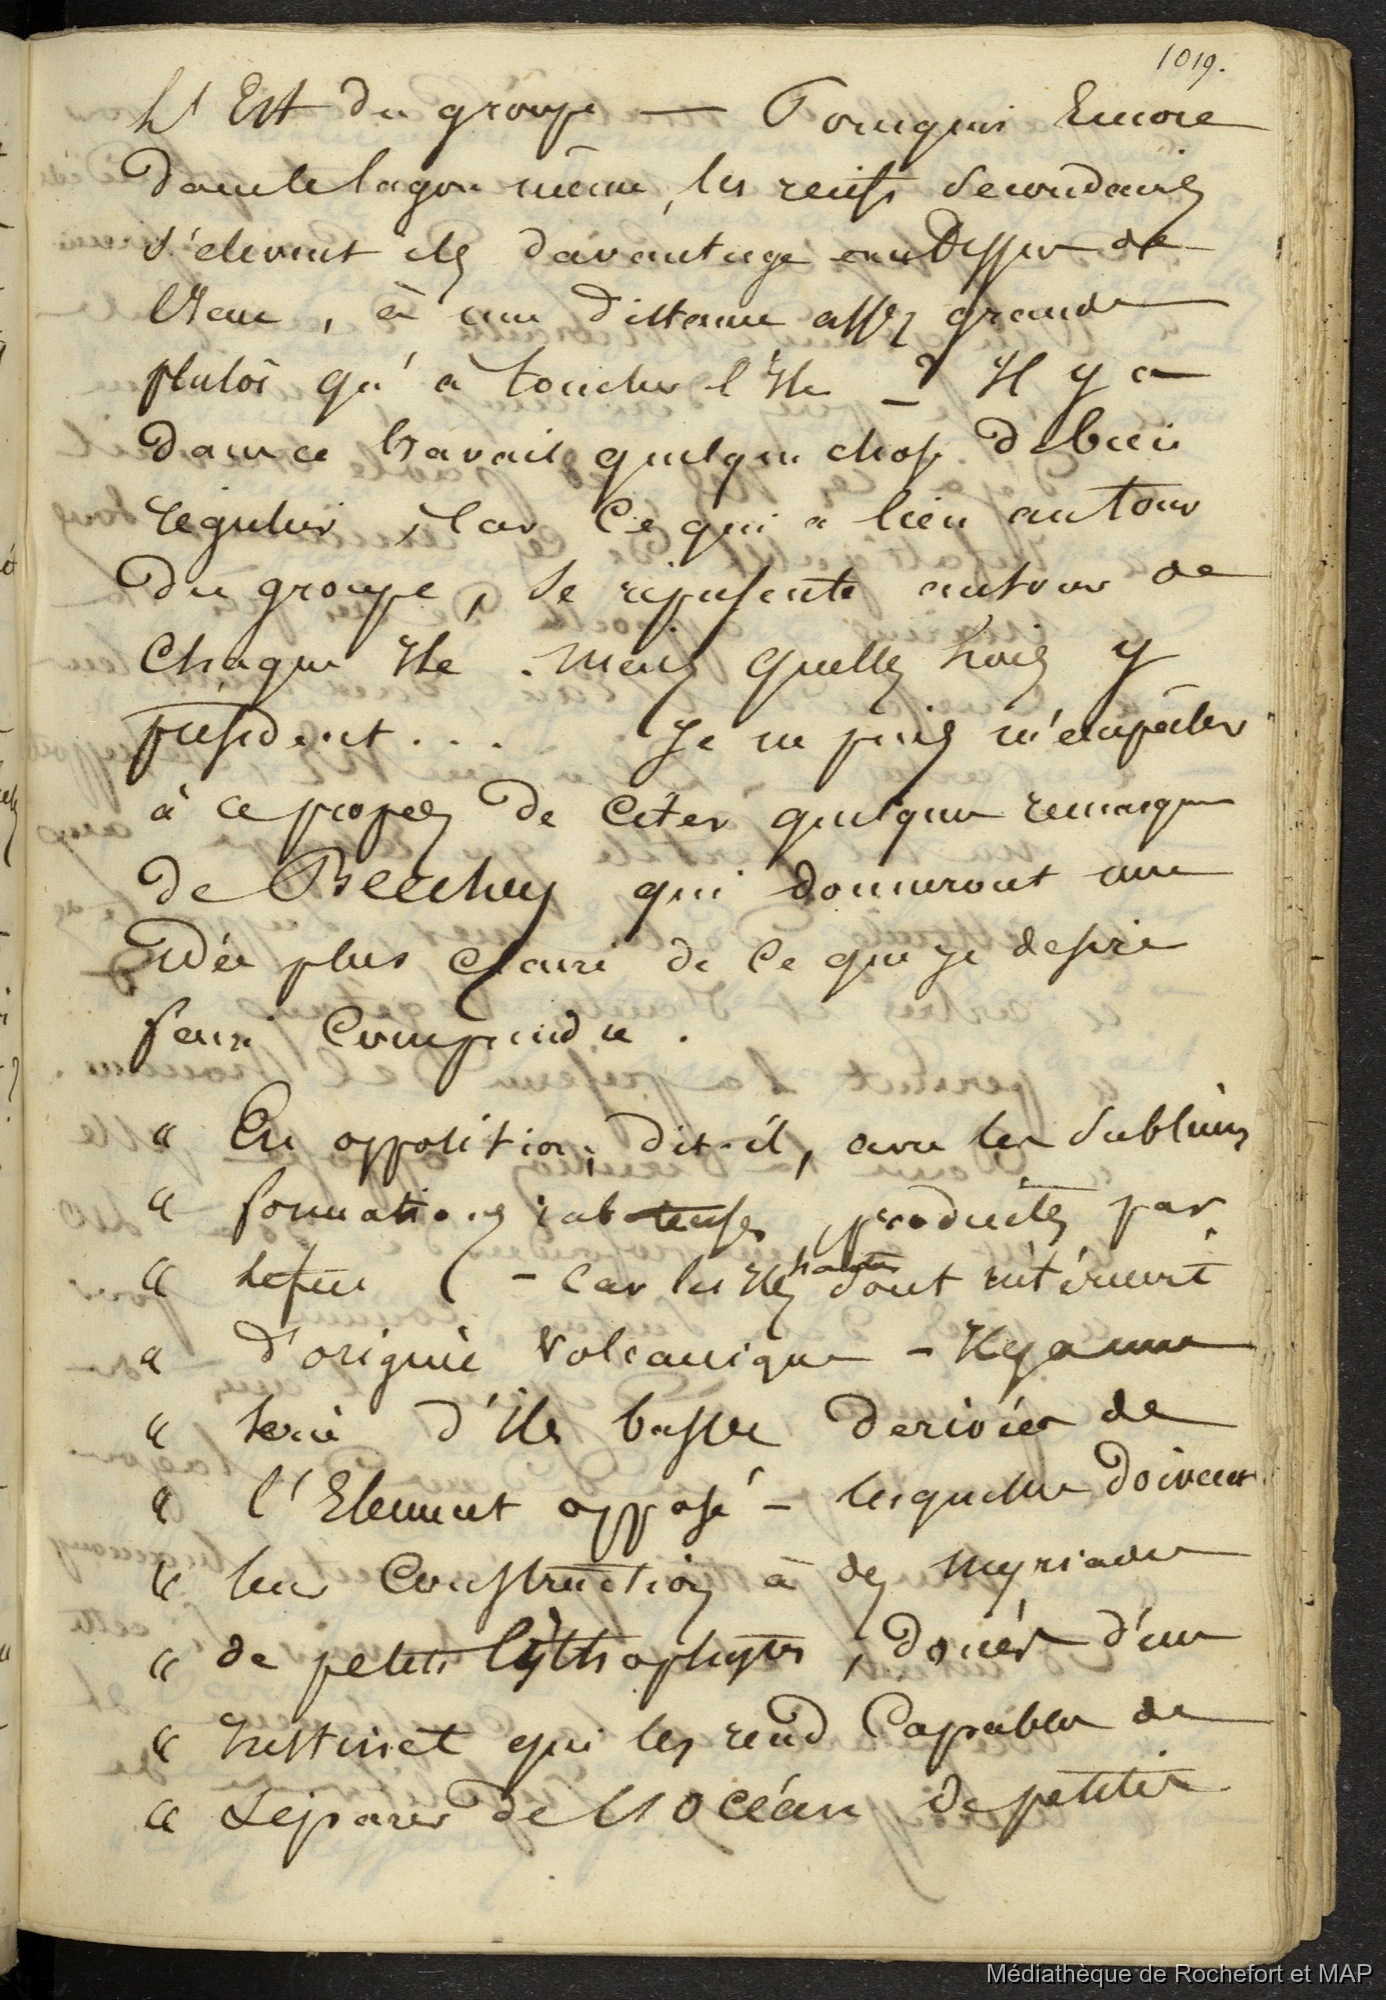 1019.
L'Est du groupe — Pourquoi Encore
dans le lagon même, les recifs secondaires
s'elevent ils davantage au Dessus de
l'Eau, à une distance assez grande
plutôt qu'à toucher l'Ile _? Il y a
dans ce travail quelque chose de bien
régulier, Car Ce qui a lieu autour
du groupe, se représente autour de
Chaque Ile. Mais quelles Lois y
président... Je ne puis m'empêcher
à ce propos de Citer quelques remarques
de Beechey qui donneront une
Idée plus claire de Ce que je desire
faire Comprendre.
" En opposition, dit-il, avec les Sublimes
" formations produites par
" le feu ( - Car les Iles hautes sont
" d'origine Volcanique - Il y a une
" serie d'Iles basses derivées de
" l'Element opposé - lesquelles doivent
" leur Construction à des myriades
" de petits lythophytes, doués d'un
" Instinct qui les rend Capables de
" séparer de l'Océan de petites
Médiathèque de Rochefort et MAP